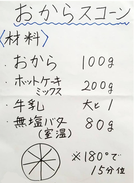 おからスコーン
〈材料〉
・おから 100g
・ホットケーキミックス 200g
・牛乳 大と1
・無塩バタ(室温) 80g
※180°で
15分位